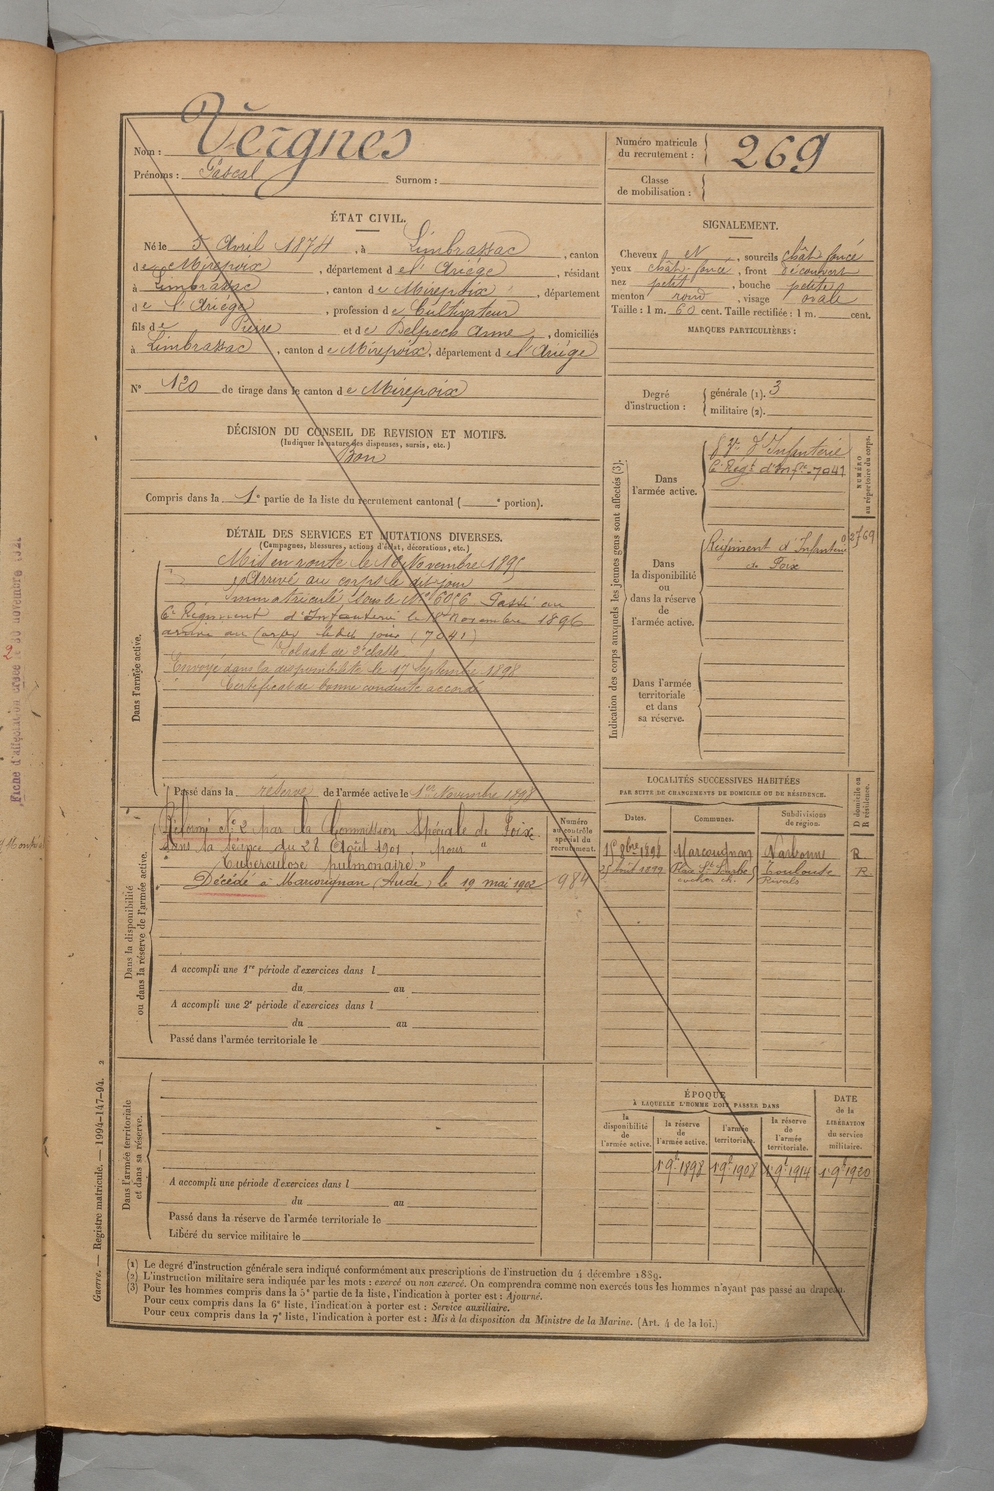 Nom : Vergnes
Prénoms : Pascal Surnom :
Numéro matricule du recrutement : 269
Classe de mobilisation :
ÉTAT CIVIL.
Né le 5 Avril 1874, à Limbrassac, canton
de Mirepoix, département de l'Ariège, résidant
à Limbrassac, canton de Mirepoix, département
de l'Ariège, profession de Cultivateur
fils de Pierre et de Delpech Anne, domiciliés
à Limbrassac, canton de Mirepoix, département de l'Ariège
N° 120 de tirage dans le canton de Mirepoix
SIGNALEMENT.
Cheveux et, sourcils chât. foncé
yeux chât. foncé, front découvert
nez petit, bouche petite
menton rond, visage ovale
Taille : 1 m. 60 cent. Taille rectifiée : 1 m. cent.
MARQUES PARTICULIÈRES :
Degré d'instruction : générale (1). 3
militaire (2).
DÉCISION DU CONSEIL DE REVISION ET MOTIFS.
(Indiquer la nature des dispenses, sursis, etc.)
Bon
Compris dans la 1e partie de la liste du recrutement cantonal ( e portion).
DÉTAIL DES SERVICES ET MUTATIONS DIVERSES.
(Campagnes, blessures, actions d'éclat, décorations, etc.)
Dans l'armée active.
Mis en route le 16 Novembre 1895
Arrivé au corps le dit jour
immatriculé sous le N° 6056 Passé au
6e Régiment d'Infanterie le 18 Novembre 1896
arrivé au corps le dit jour (7041)
Soldat de 2e classe
Envoyé dans la disponibilité le 17 Septembre 1898
Certificat de bonne conduite accordé
Passé dans la réserve de l'armée active le 1er Novembre 1898
Dans la disponibilité ou dans la réserve de l'armée active.
Réformé N° 2 par la Commission Spéciale de Foix
dans la séance du 28 Août 1901, pour "
Tuberculose pulmonaire "
Décédé à Marcorignan (Aude) le 19 mai 1902
Numéro au contrôle spécial du recrutement.
984
A accompli une 1re période d'exercices dans l
du au
A accompli une 2e période d'exercices dans l
du au
Passé dans l'armée territoriale le
Dans l'armée territoriale et dans sa réserve.
A accompli une période d'exercices dans l
du au
Passé dans la réserve de l'armée territoriale le
Libéré du service militaire le
Indication des corps auxquels les jeunes gens sont affectés (3).
NUMÉRO au répertoire du corps.
Dans l'armée active.
d'Infanterie
6e Régt d'Infie 7041
Dans la disponibilité ou dans la réserve de l'armée active.
Régiment d'Infanterie
de Foix
2769
Dans l'armée territoriale et dans sa réserve.
LOCALITÉS SUCCESSIVES HABITÉES
PAR SUITE DE CHANGEMENTS DE DOMICILE OU DE RÉSIDENCE.
D domicile ou R résidence.
Dates. Communes. Subdivisions de région.
8bre 1898 Marcorignan Narbonne R
25 Août 1899 Toulouse R
ÉPOQUE
À LAQUELLE L'HOMME DOIT PASSER DANS
la disponibilité de l'armée active.
la réserve de l'armée active.
l'armée territoriale.
la réserve de l'armée territoriale.
DATE de la LIBÉRATION du service militaire.
1 9b 1898 1 9b 1908 1 9b 1914 1 9b 1920
(1) Le degré d'instruction générale sera indiqué conformément aux prescriptions de l'instruction du 4 décembre 1889.
(2) L'instruction militaire sera indiquée par les mots : exercé ou non exercé. On comprendra comme non exercés tous les hommes n'ayant pas passé au drapeau.
(3) Pour les hommes compris dans la 5e partie de la liste, l'indication à porter est : Ajourné.
Pour ceux compris dans la 6e liste, l'indication à porter est : Service auxiliaire.
Pour ceux compris dans la 7e liste, l'indication à porter est : Mis à la disposition du Ministre de la Marine. (Art. 4 de la loi.)
Guerre. — Registre matricule. — 1994-147-94. 2